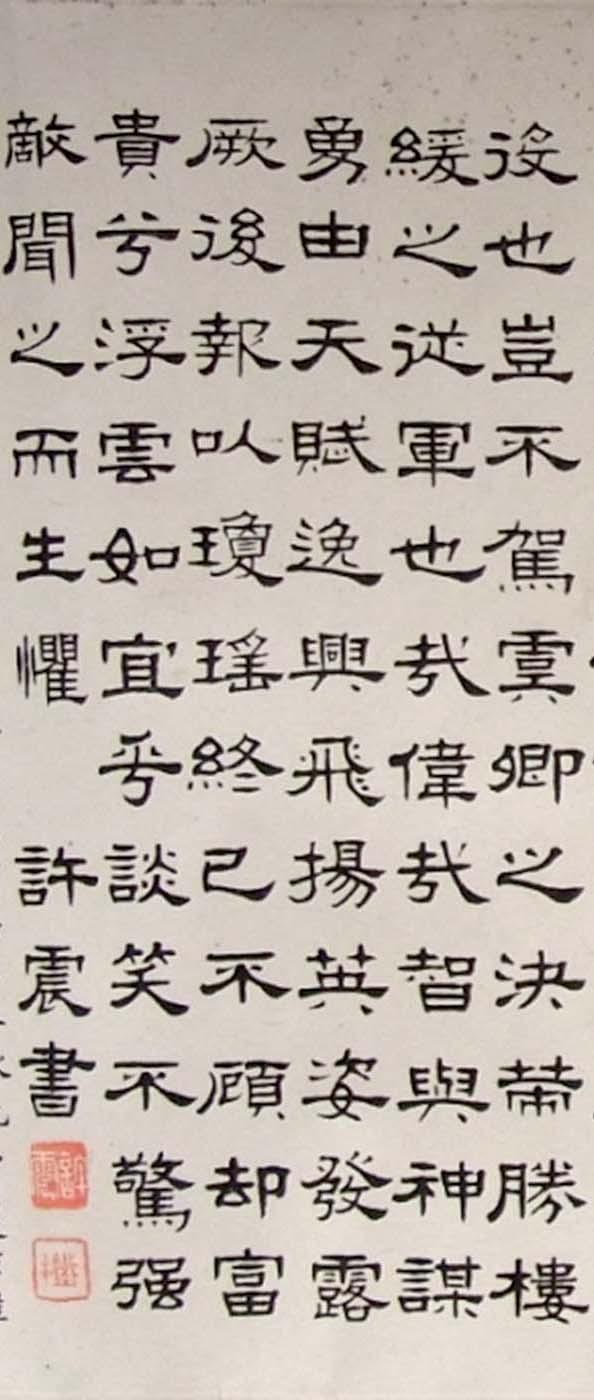 役也豈不駕虞卿之決荣勝樓
緩之従軍也哉偉哉智與神謀
勇由天賦逸興飛揚英姿發露
厥後報以瓊瑤終已不顧却富
貴兮浮雲如宜乎談笑不驚强
敵聞之而生懼 許震書
許震